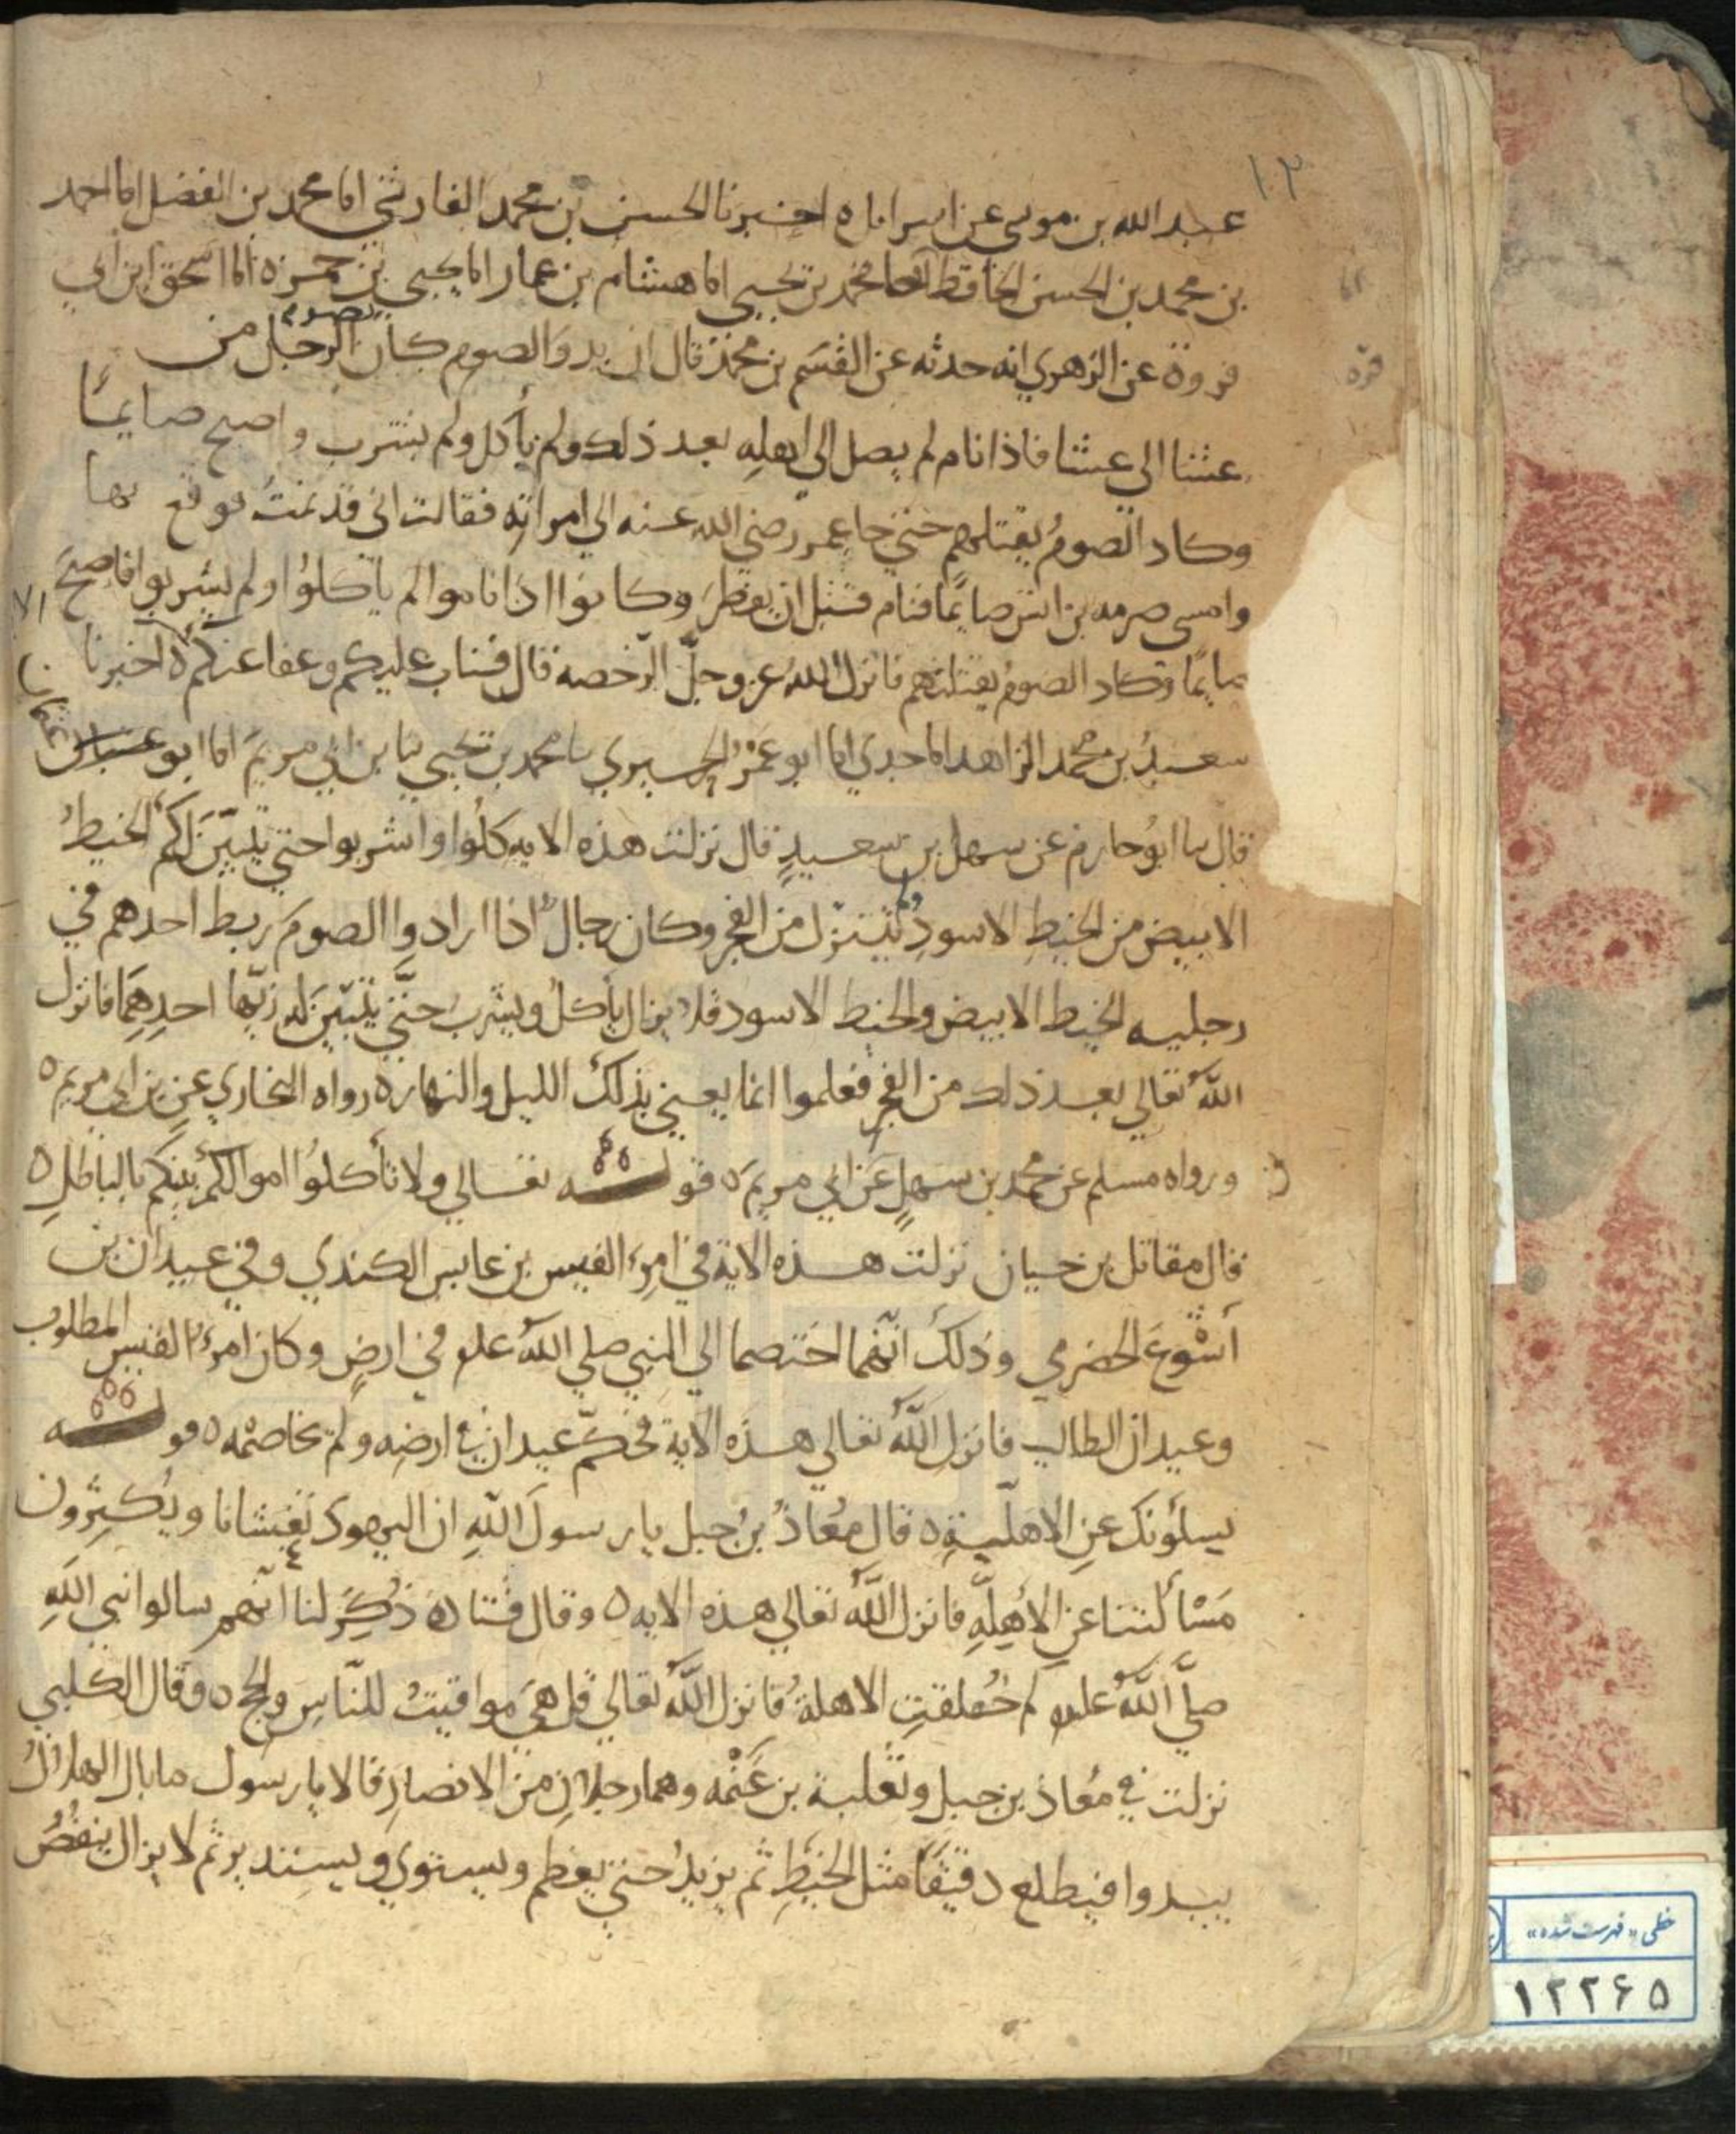 ١٢
عبد الله بن موسى عن اسرايل ه اخبرنا الحسن بن محمد الفارسي انا محمد بن الفضل انا احمد
بن محمد بن الحسن الحافظ انا محمد بن يحيى انا هشام بن عمار انا يحيى بن حمزه انا اسحق ابن ابي
فروة عن الزهري انه حدثه عن القسم بن محمد قال ان بدو الصوم كان يصوم الرجل من
عشا الى عشا فاذا نام لم يصل الى اهله بعد ذلك ولم يأكل ولم يشرب واصبح صايماً
وكاد الصومُ يقتلهم حتى جا عمر رضي الله عنه الى امراته فقالت اني قد نمتُ فوقع بها
وامسى صرمه بن انس صايمًا فنام قبل ان يفطرَ وكانوا اذا ناموا لم ياكلوا ولم يشربوا فاصبحَ
صايمًا وكاد الصومُ يقتلهم فانزل اللهُ عز وجلّ الرّخصه قال فتاب عليكم وعفا عنكم ه اخبرنا
سعيدُ بن محمد الزاهد انا جدي انا ابو عمرو الحيري نا محمد بن يحيى نا بن ابي مريمَ انا ابو غسان
قال نا ابوُ حازم عن سهل بن سعيدٍ قال نزلت هذه الايه كلُوا واشربوا حتى يتبيّنَ لكم الخيطُ
الابيض من الخيطِ الاسودِ ولم ينزل من الفجر وكان رجالٌ اذا ارادوا الصومَ ربط احدهم في
رجليه الخيط الابيض والخيط الاسود فلا يزال يأكلُ ويشرب حتّى يتبيّنَ له زيّهما احدِهما فانزل
اللّهُ تعالي بعد ذلك من الفجر فعلموا انما يعني بذلكَ الليل والنهار ه رواه البخاري عن بن ابي مريم ه
ورواه مسلم عن محمد بن سهلٍ عن ابي مريمَ ه قوله تعالي ولا تأكلوُا اموالكم بينكم بالباطلِ ه
قال مقاتل بن حيان نزلت هذه الاية في امرِء القيس بن عابس الكندي وفي عيدان بن
أشْوعَ الحضرمي وذلكَ انّهُما اختصما الي النبي صلي اللهُ علم في ارضٍ وكان امرءُ القيس المطلوب
وعيدان الطالب فانزل اللّهُ تعالي هذه الاية فحكّم عيدان في ارضِه ولم يخاصمْه ه قوله
يسلُونكَ عن الاهلّةِ ه قال مُعَاذُ بنُ جبل يا رسولَ اللهِ ان اليهودَ تغشانا ويُكثِرون
مَسْألتنا عن الأهِلّهِ فانزل اللّهُ تعالي هذه الايه ه وقال قتاده ذُكِرَ لنا انّهم سالوا نبي اللهِ
صلّي اللّهُ علم لم خُلقتِ الاهلهُ فانزل اللّهُ تعالي قل هيَ مواقيتُ للنّاسِ والحج ه وقال الكلبي
نزلت في مُعاذ بن جبلٍ وثعلبة بن عَنْمه وهما رجلانِ من الانصارِ قالا يا رسول ما بال الهلالُ
يبدوا فيطلع دقيقًا مثل الخيطِ ثم يزيدُ حتى يعظم ويستوي ويستدير ثم لا يزال ينقُصُ
خطی «فهرست شده»
١٢٢٦٥